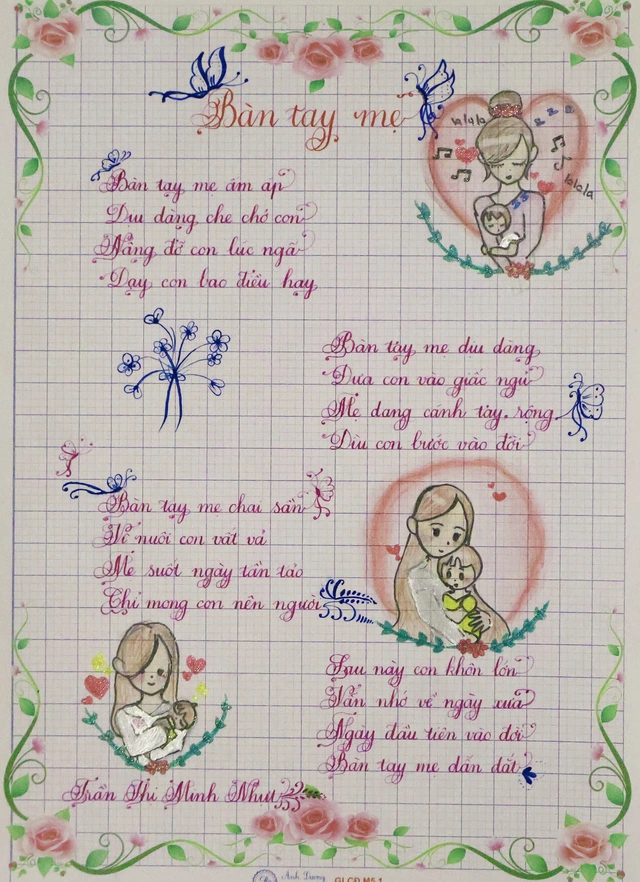 Bàn tay mẹ
la la la
la la la
Bàn tay mẹ ấm áp
Dịu dàng che chở con
Nâng đỡ con lúc ngã
Dạy con bao điều hay
Bàn tay mẹ dịu dàng
Đưa con vào giấc ngủ
Mẹ dang cánh tay rộng
Dìu con bước vào đời
Bàn tay mẹ chai sần
Vì nuôi con vất vả
Mẹ suốt ngày tần tảo
Chỉ mong con nên người
Sau này con khôn lớn
Vẫn nhớ về ngày xưa
Ngày đầu tiên vào đời
Bàn tay mẹ dẫn dắt
Trần Thi Minh Như
Ánh Dương
GLCĐ M5.1